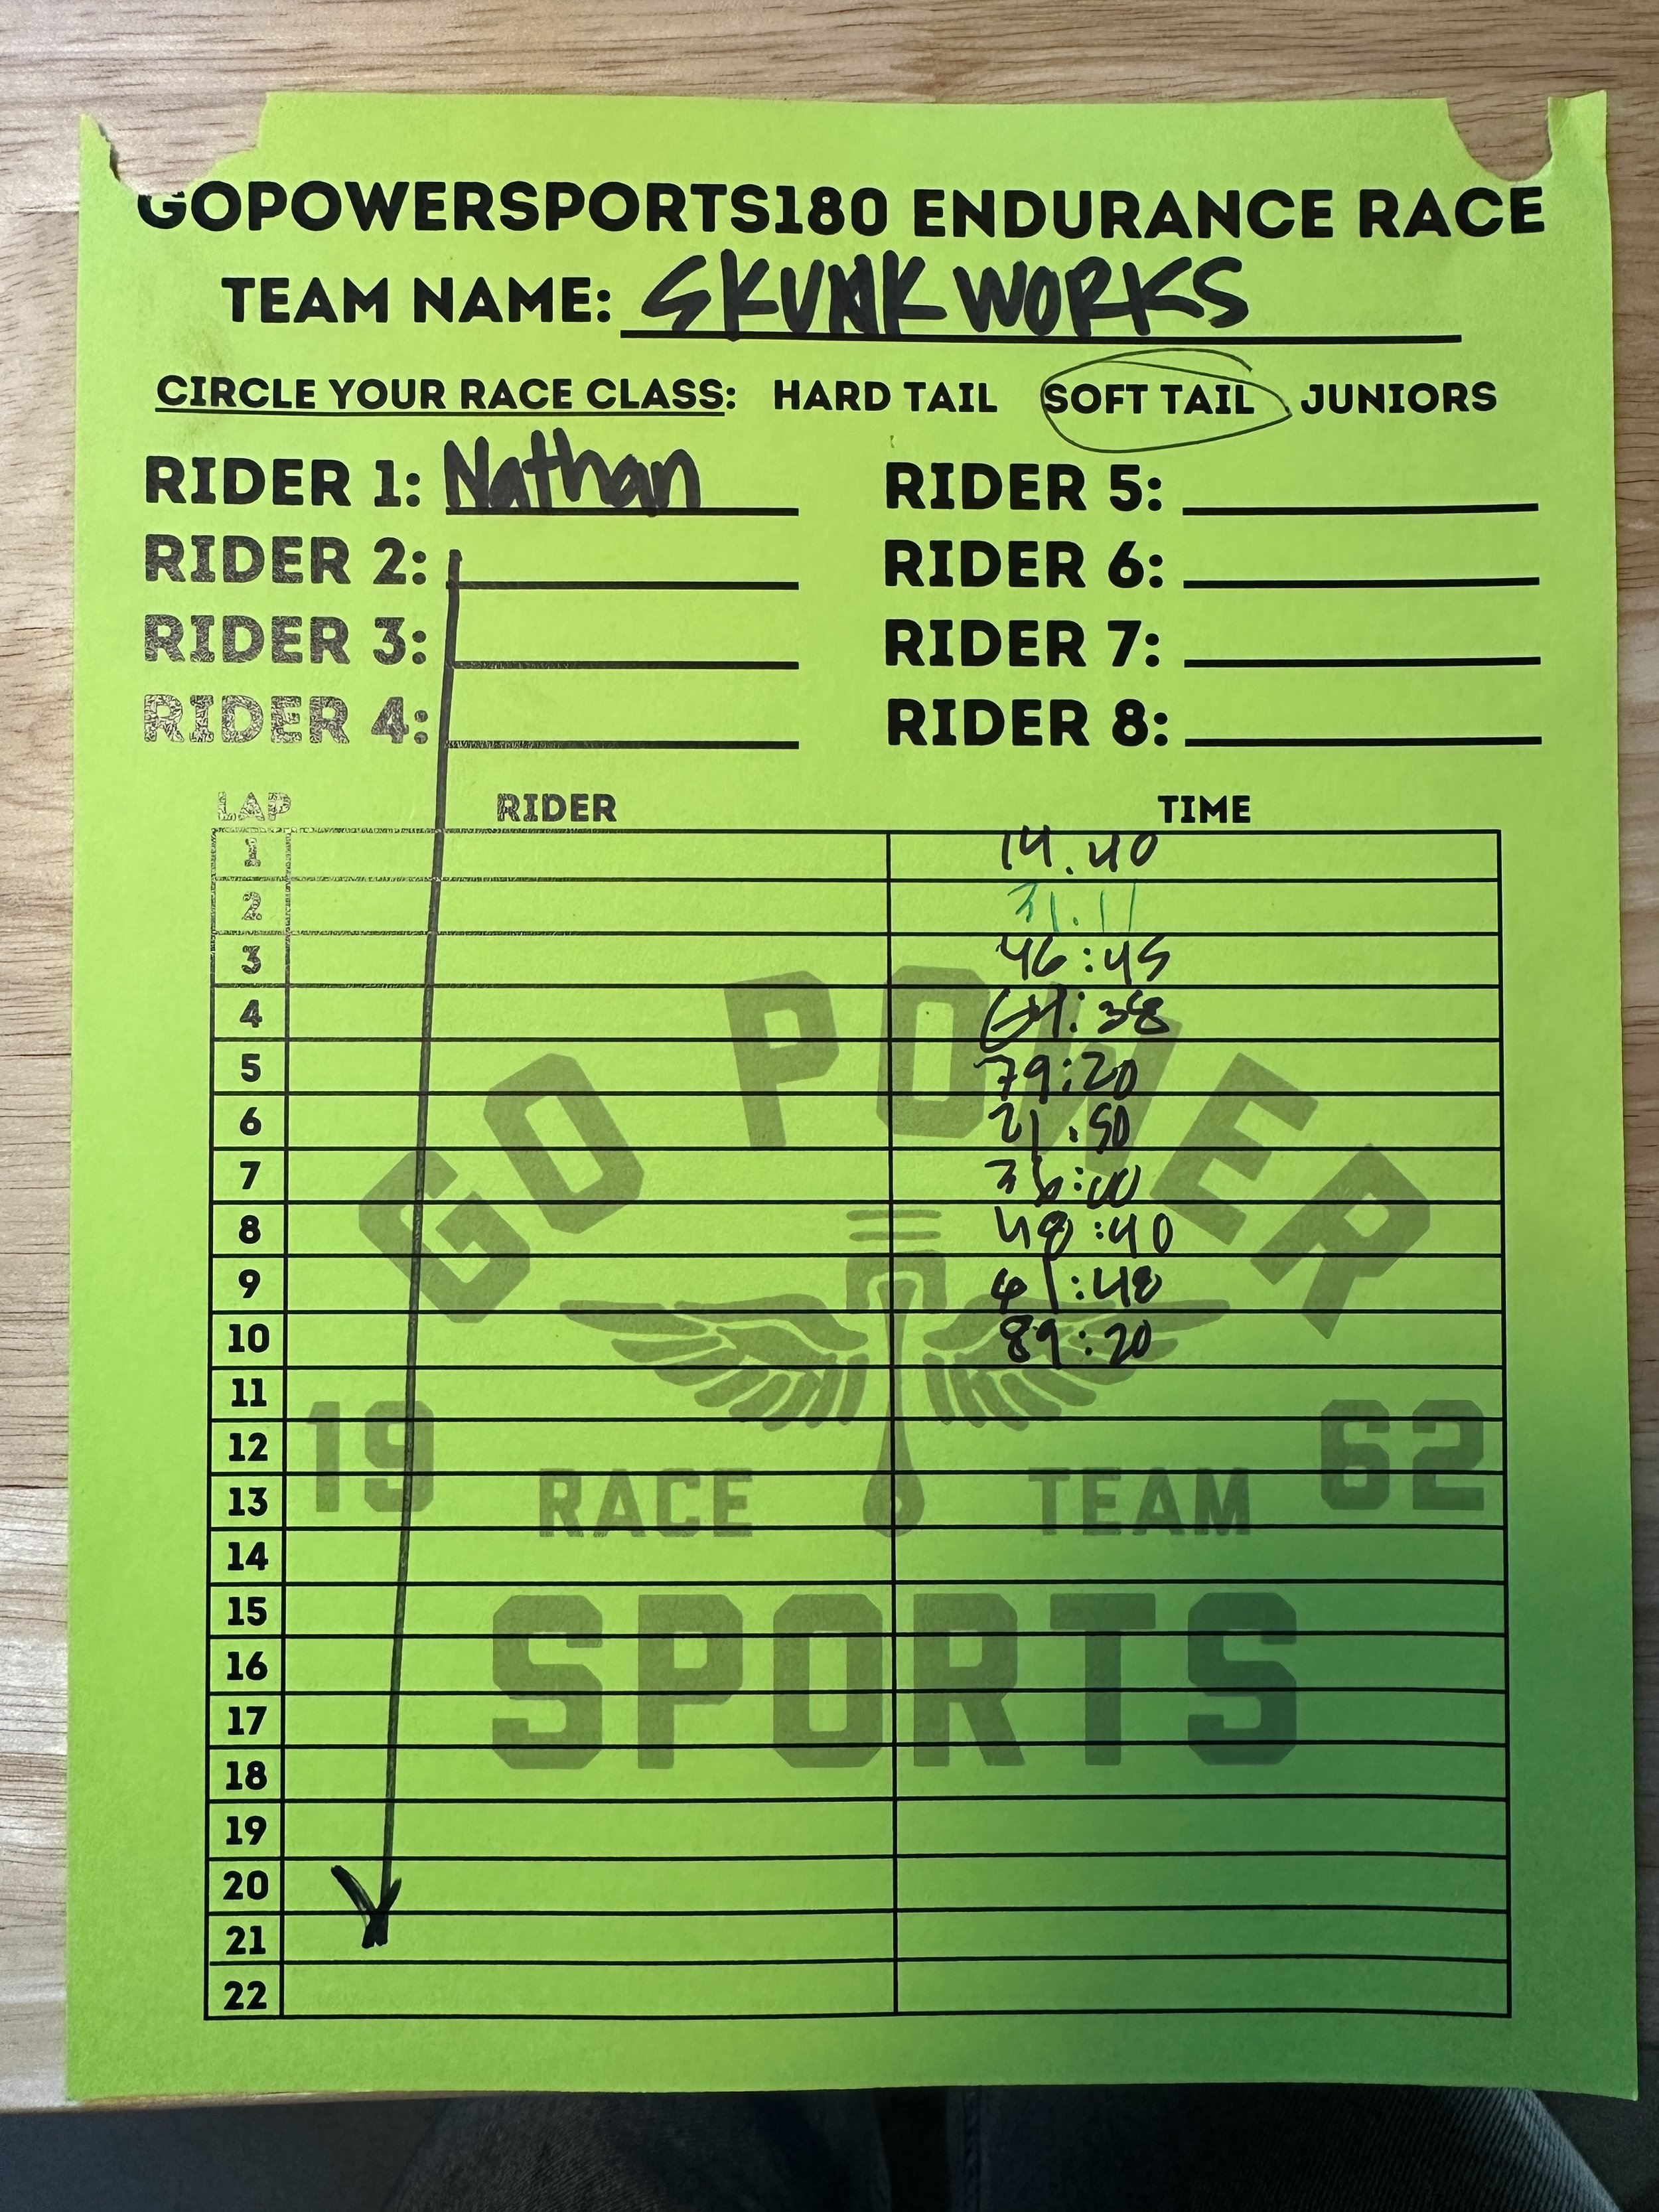 GOPOWERSPORTS180 ENDURANCE RACE
TEAM NAME: SKUNKWORKS
CIRCLE YOUR RACE CLASS: HARD TAIL SOFT TAIL JUNIORS
RIDER 1: Nathan RIDER 5:
RIDER 2: RIDER 6:
RIDER 3: RIDER 7:
RIDER 4: RIDER 8:
LAP RIDER TIME
1 14.40
2 31.11
3 46:45
4 64:38
5 79:20
6 21:50
7 36:00
8 48:40
9 61:48
10 89:20
11
12
13
14
15
16
17
18
19
20
21
22
GO POWER
19 62
RACE TEAM
SPORTS